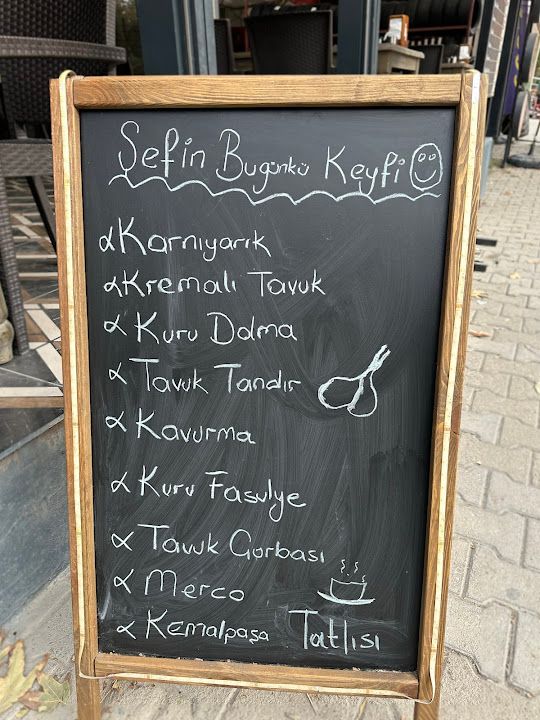 Şefin Bugünkü Keyfi
Karnıyarık
Kremalı Tavuk
Kuru Dolma
Tavuk Tandır
Kavurma
Kuru Fasulye
Tavuk Çorbası
Merco
Kemalpaşa Tatlısı